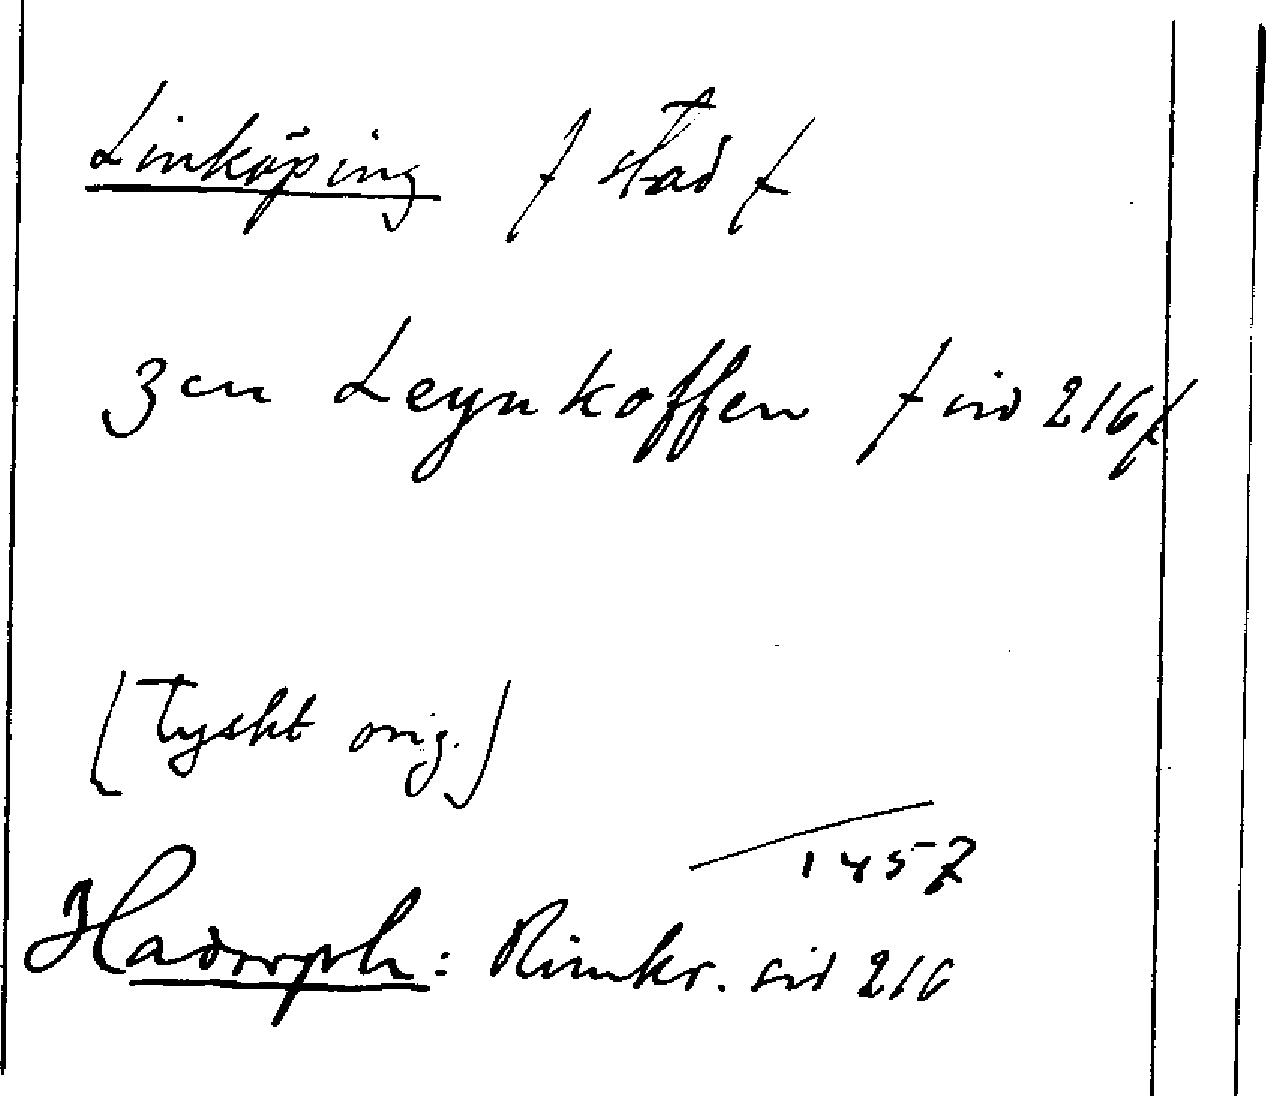 Linköping / stad /
zcu Leynkoffen / sid 216 /
[tyskt orig.]
1457
Hadorph: Rimkr. sid 216